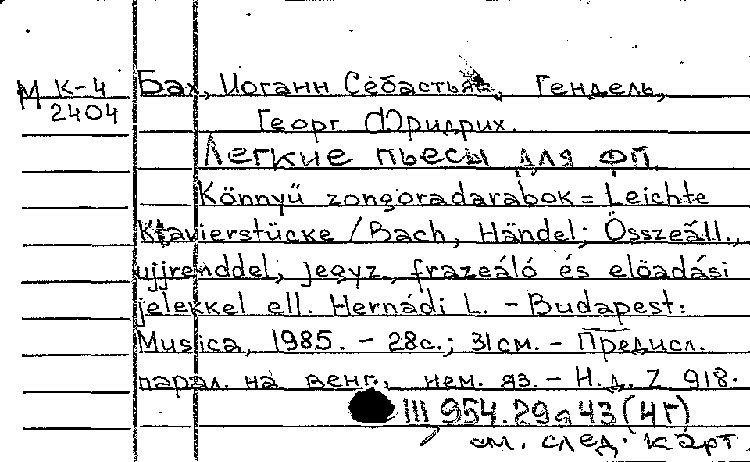 М К-4
2404
Бах, Иоганн Себастьян, Гендель,
Георг Фридрих.
Легкие пьесы для фп.
Könnyű zongoradarabok = Leichte
Klavierstücke / Bach, Händel; Összeáll.,
ujjrenddel, jegyz., frazeáló és elöadási
jelekkel ell. Hernádi L. - Budapest:
Musica, 1985. - 28с.; 31см. - Предисл.
парал. на венг., нем. яз. - Н.д. Z 918.
III 954.29а43(4Г)
см. след. карт.